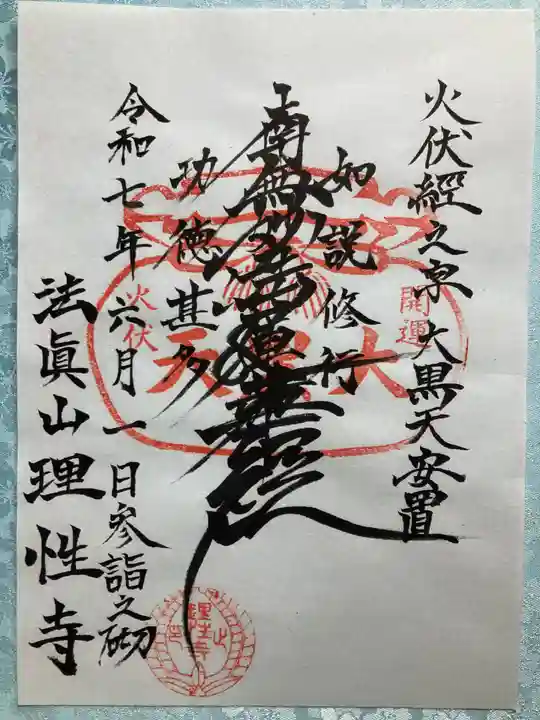 火伏經之泉大黒天安置
如説修行
南無妙法蓮華經
功徳甚多
令和七年六月一日参詣之砌
法眞山理性寺
開運
大黒天
火伏
理性寺